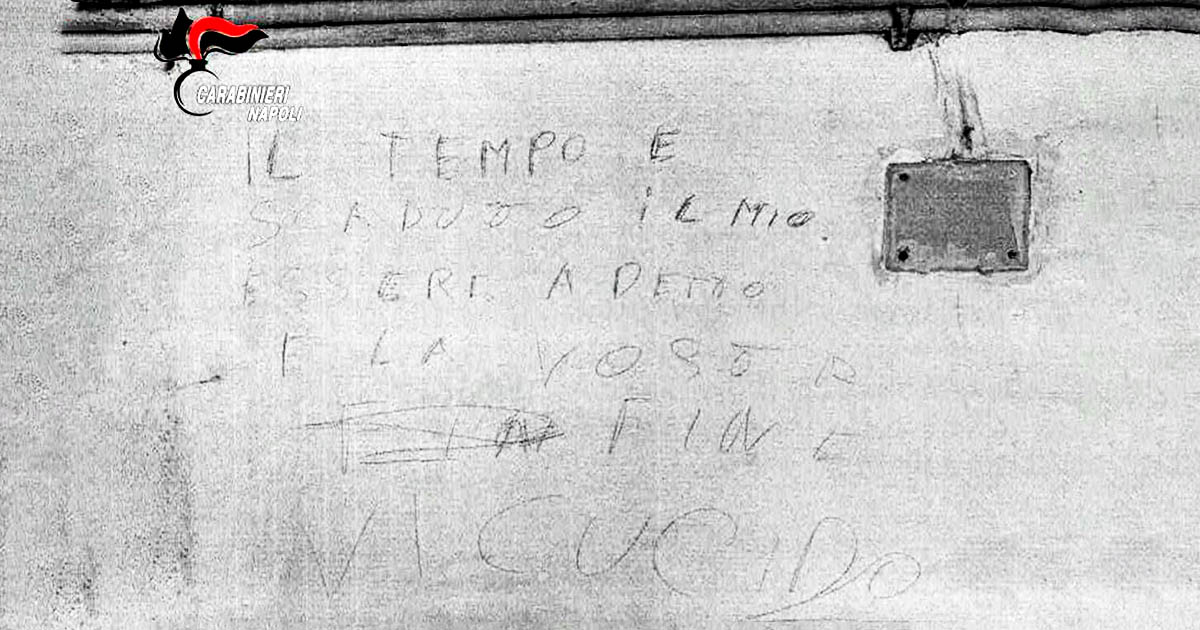 CARABINIERI
NAPOLI
IL TEMPO E
SCADUTO iL MIO.
ESSERE A DETTO
E LA VOSTA
FINE
VI CUCIDO